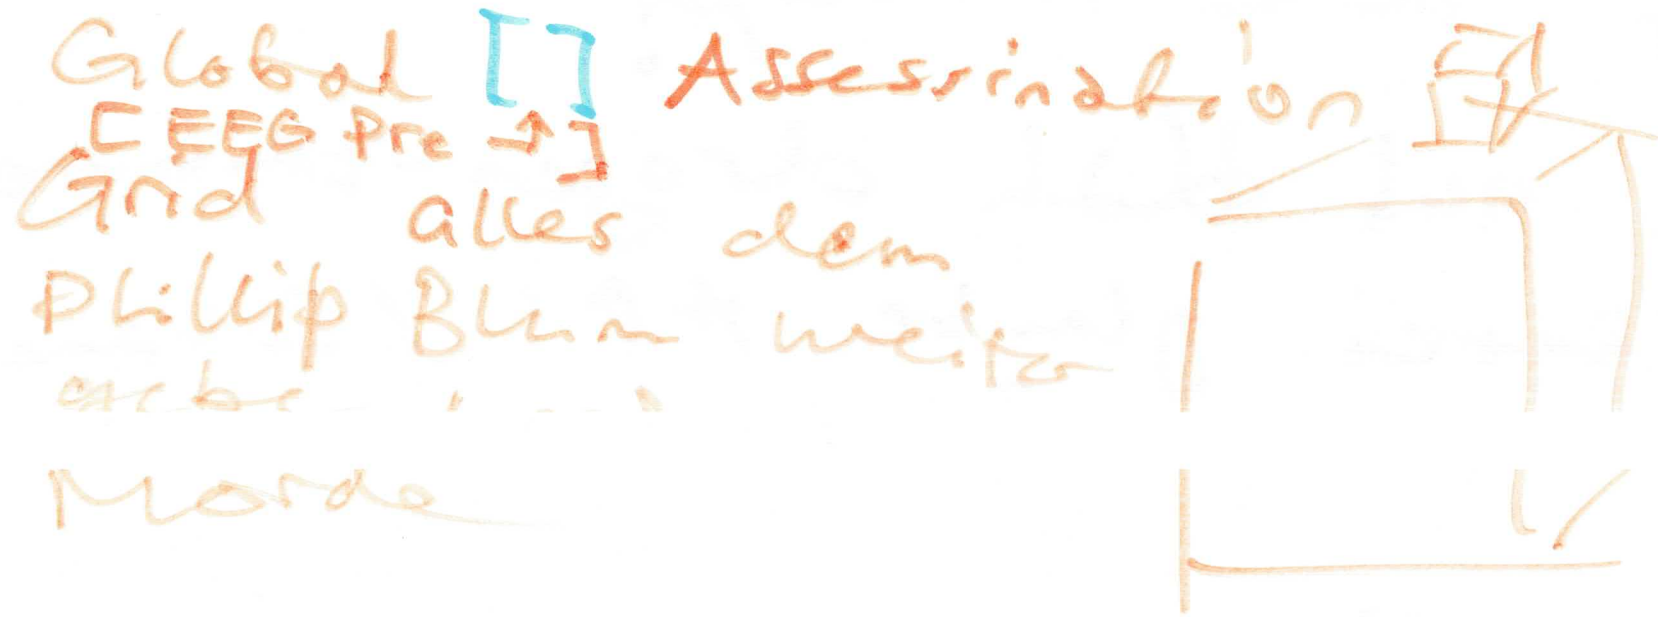 Global [ ] Assessination
[ EEG Pre → ]
Grid alles dem
Phillip Blum weiter
Morde